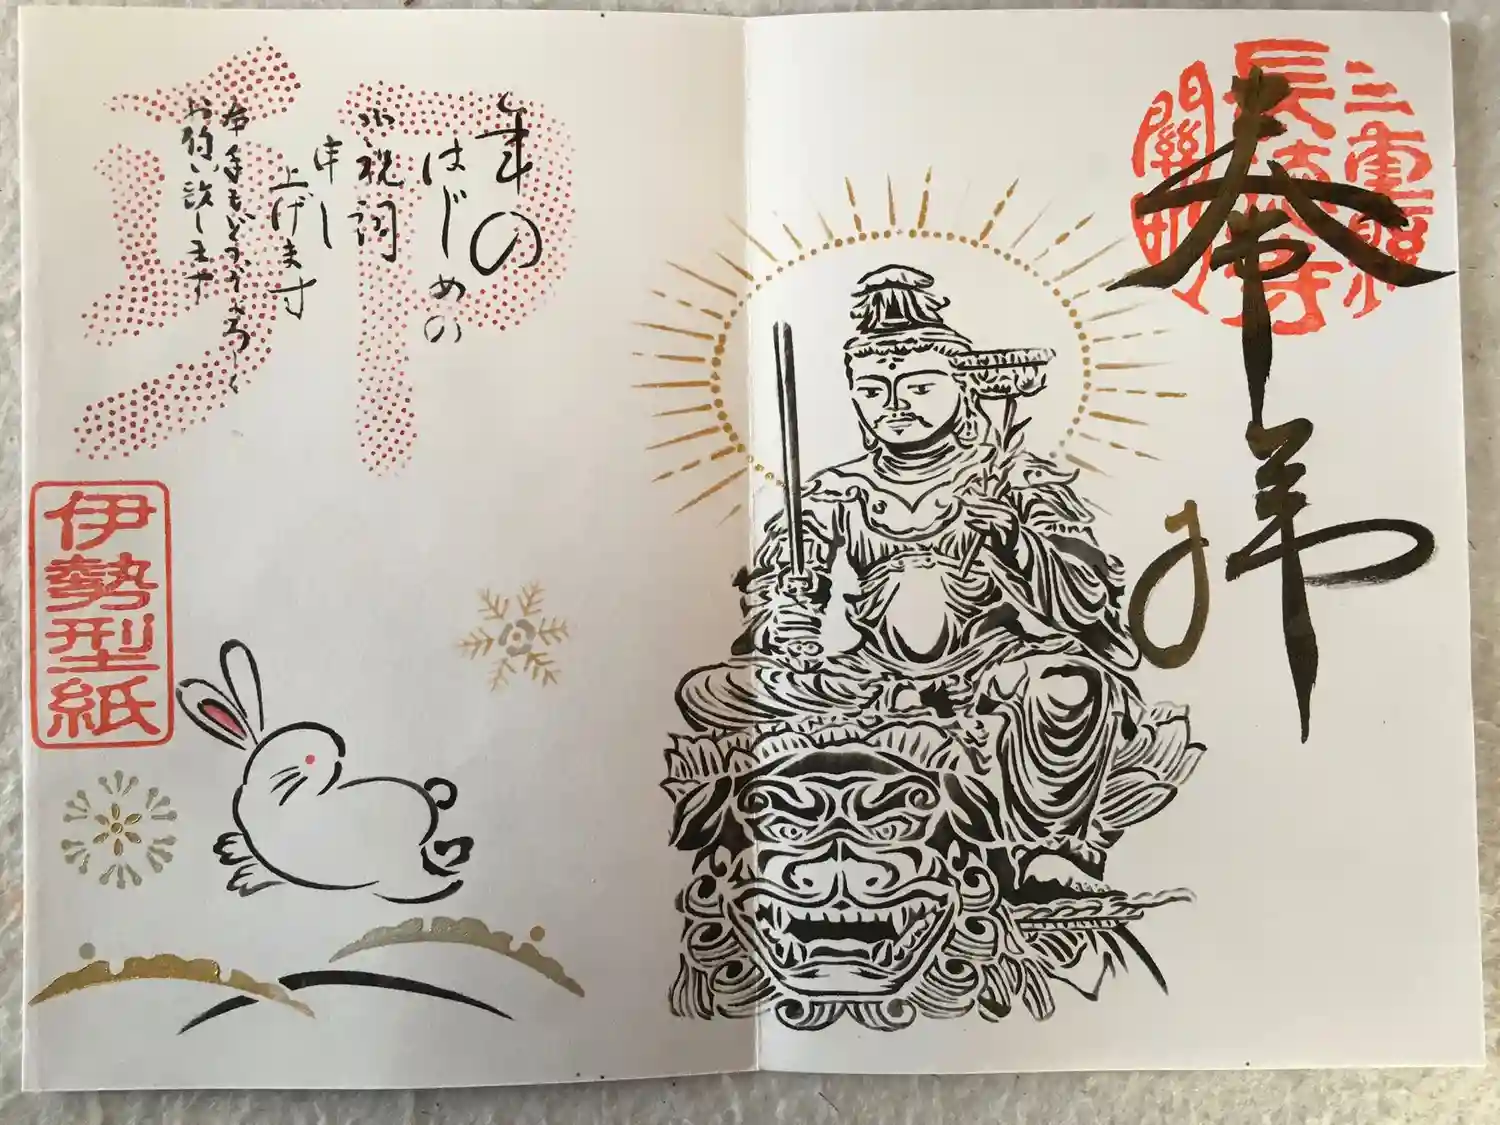 三重縣
長徳寺
奉拝
卯
年の
はじめの
御祝詞
申し
上げます
本年もどうぞよろしく
お願い致します
伊勢型紙